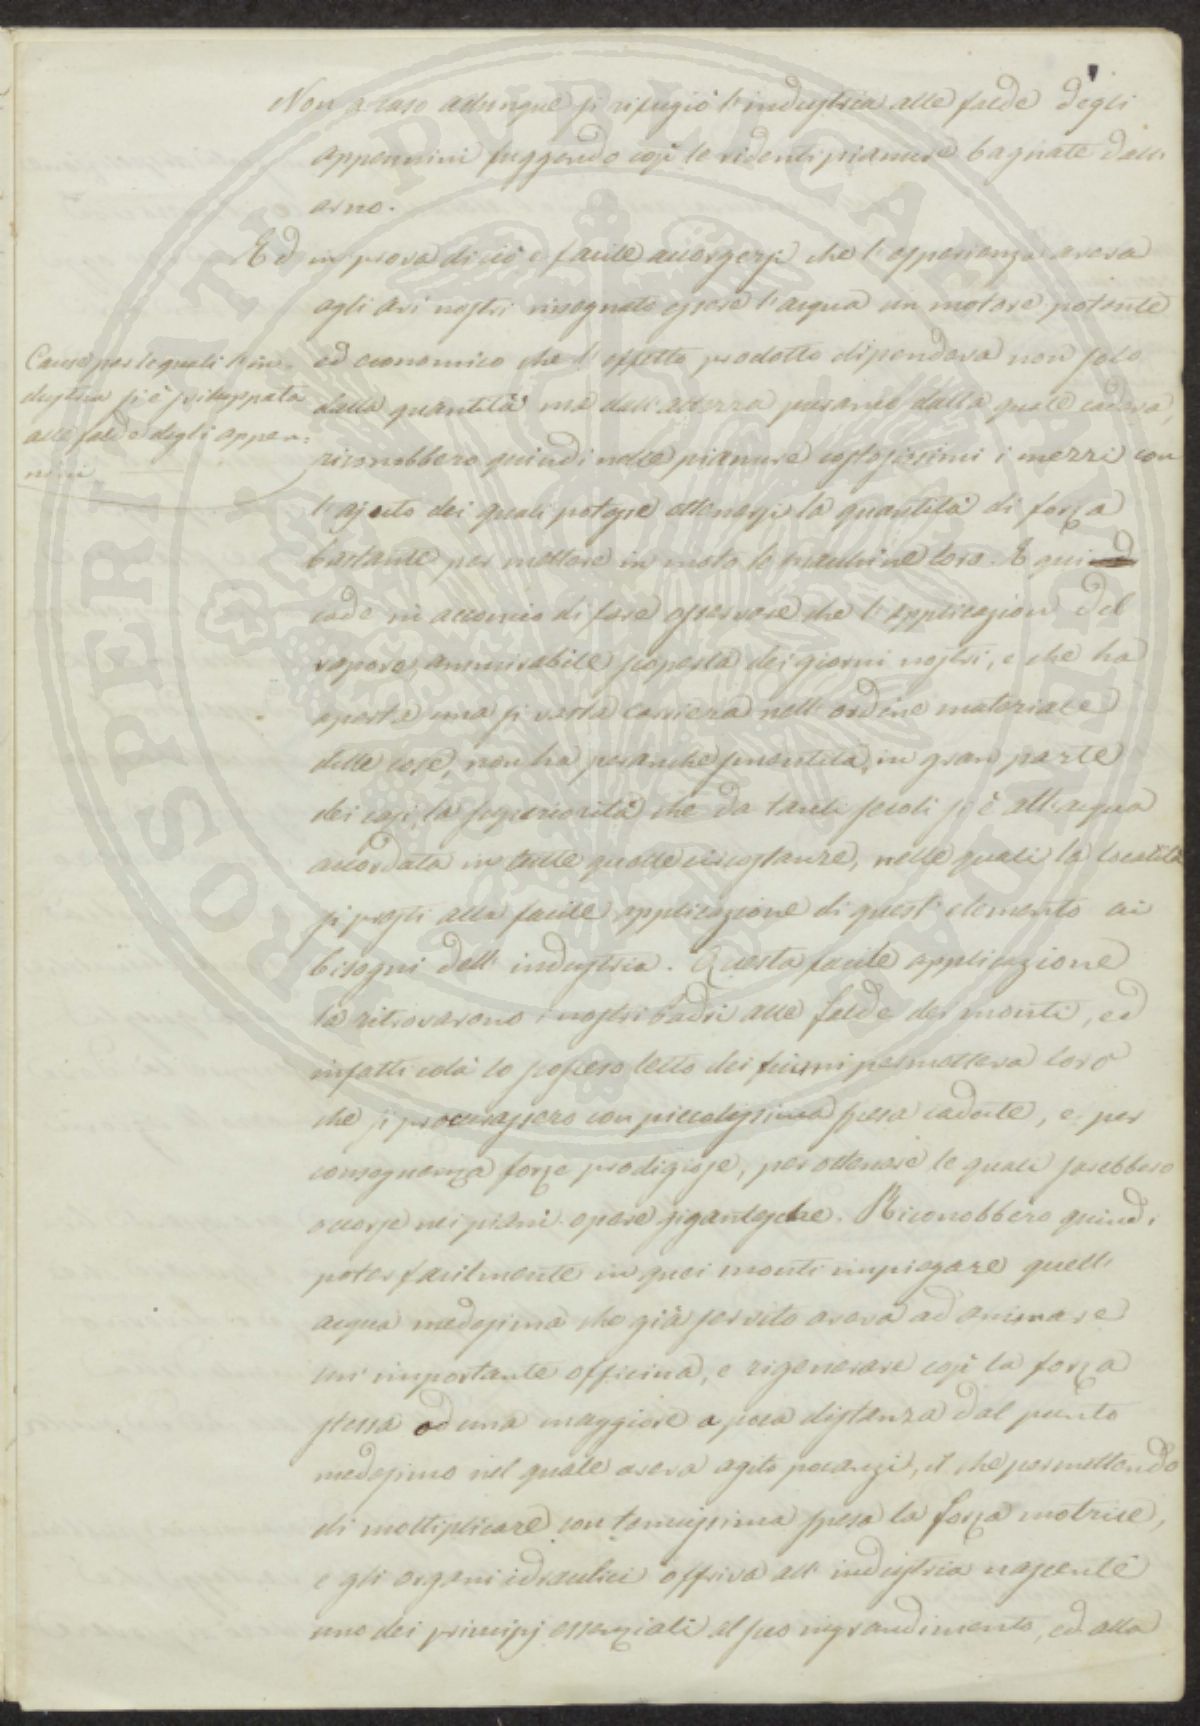 Non a caso adunque si rifugiò l'industria alle falde degli
appennini fuggendo così le ridenti pianure bagnate dall'
arno.
Ed in prova di ciò è facile accorgersi che l'esperienza aveva
agli avi nostri insegnato essere l'acqua un motore potente
ed economico che l'effetto prodotto dipendeva non solo
dalla quantità ma dall'altezza peranco dalla quale cadeva,
riconobbero quindi nelle pianure costosissimi i mezzi con
l'ajuto dei quali potesse ottenersi la quantità di forza
bastante per mettere in moto le macchine loro. E qui
cade in acconcio di fare osservare che l'applicazion del
vapore, ammirabile scoperta dei giorni nostri, e che ha
aperta una si vasta carriera nell'ordine materiale
delle cose, non ha peranche smentita, in gran parte
dei casi, la superiorità che da tanti secoli si è all'acqua
accordata in tutte quelle circostanze, nelle quali la località
si presti alla facile applicazione di quest'elemento ai
bisogni dell'industria. Questa facile applicazione
la ritrovarono i nostri Padri alle falde dei monti, ed
infatti colà lo scosceso letto dei fiumi permetteva loro
che si procurassero con piccolissima spesa cadute, e per
conseguenza forze prodigiose, per ottenere le quali sarebbero
occorse nei piani opere gigantesche. Riconobbero quindi
poter facilmente in quei monti impiegare quell'
acqua medesima che già servito aveva ad animare
un'importante officina, e rigenerare così la forza
stessa od una maggiore a poca distanza dal punto
medesimo nel quale aveva agito pocanzi, il che permettendo
di moltiplicare con tenuissima spesa la forza motrice,
e gli organi idraulici offriva all'industria nascente
uno dei principj essenziali al suo ingrandimento, ed alla
Cause per le quali l'in-
dustria si è sviluppata
alle falde degli appen-
nini
PROSPERITATI PUBLICAE AUGENDAE